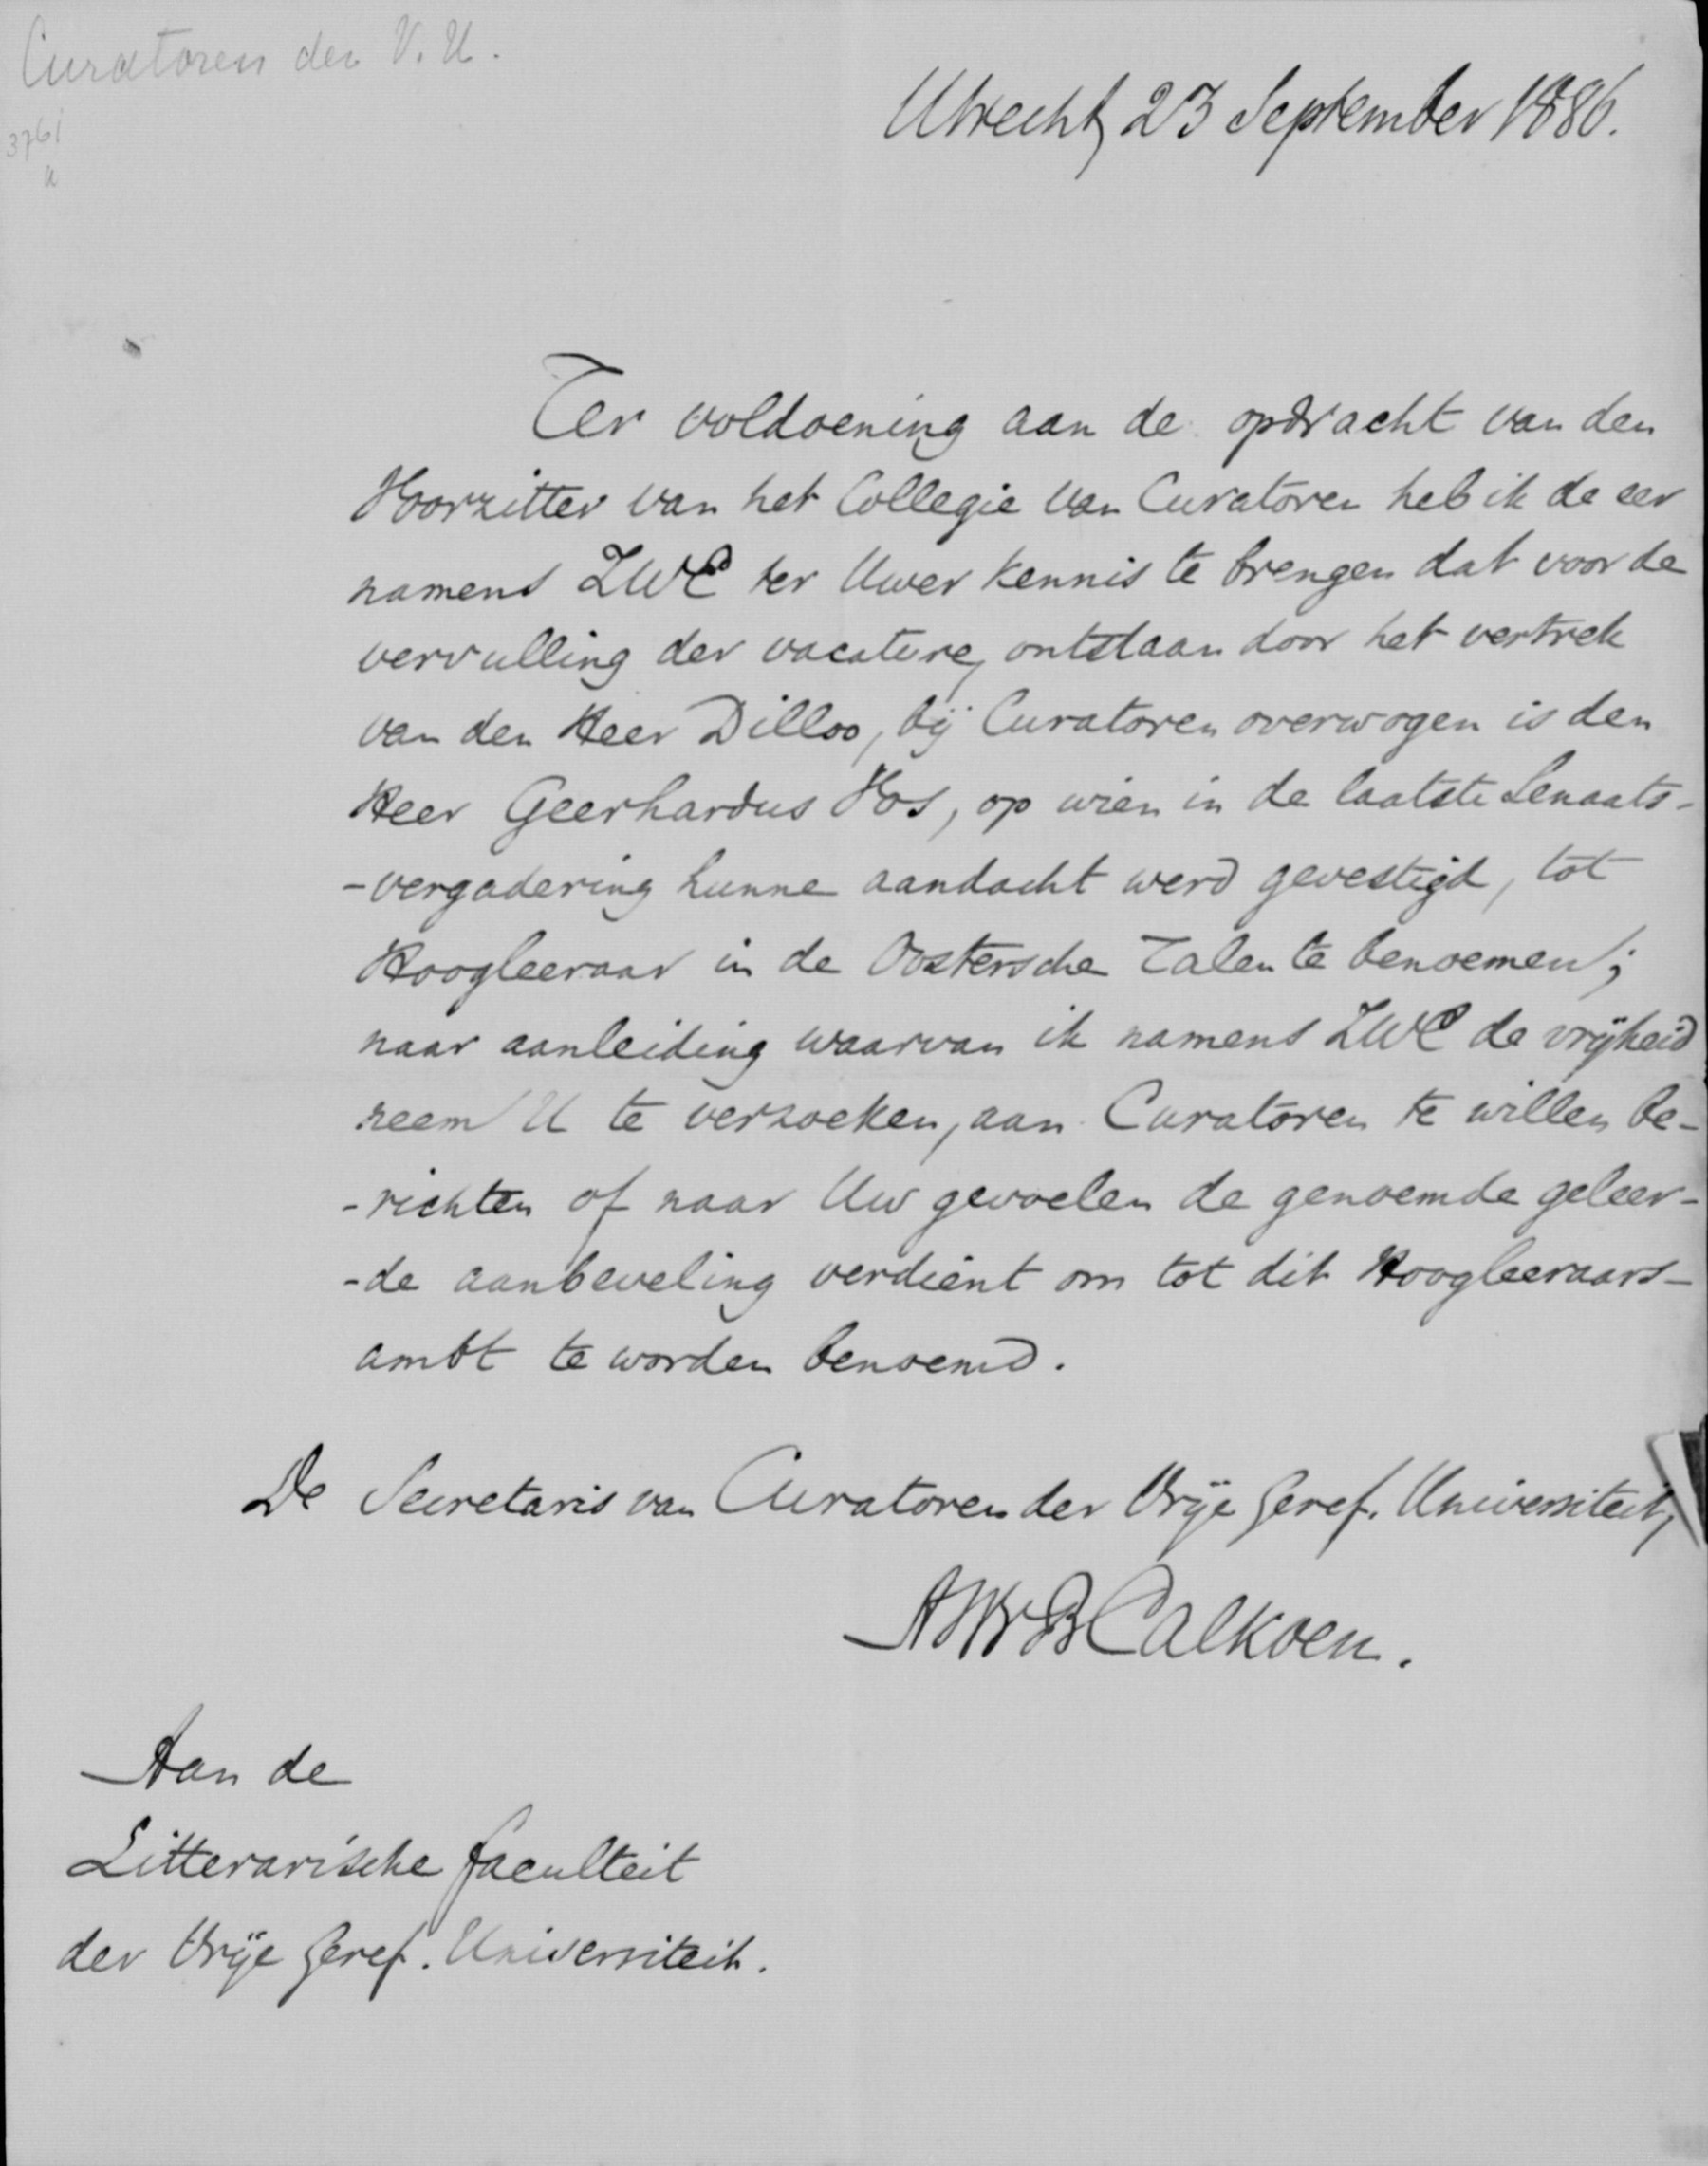 Curatoren der V. U.
3761
a
Utrecht, 23 September 1886.
Ter voldoening aan de opdracht van den
Voorzitter van het Collegie van Curatoren heb ik de eer
namens ZWEd ter Uwer kennis te brengen dat voor de
vervulling der vacature, ontstaan door het vertrek
van den Heer Dilloo, bij Curatoren overwogen is den
Heer Geerhardus Vos, op wien in de laatste Senaats-
-vergadering hunne aandacht werd gevestigd, tot
Hoogleeraar in de Oostersche Talen te benoemen;
naar aanleiding waarvan ik namens ZWEd de vrijheid
neem U te verzoeken, aan Curatoren te willen be-
-richten of naar Uw gevoelen de genoemde geleer-
-de aanbeveling verdient om tot dit Hoogleeraars-
ambt te worden benoemd.
De Secretaris van Curatoren der Vrije Geref. Universiteit,
AWvBCalkoen.
Aan de
Litterarische faculteit
der Vrije Geref. Universiteit.